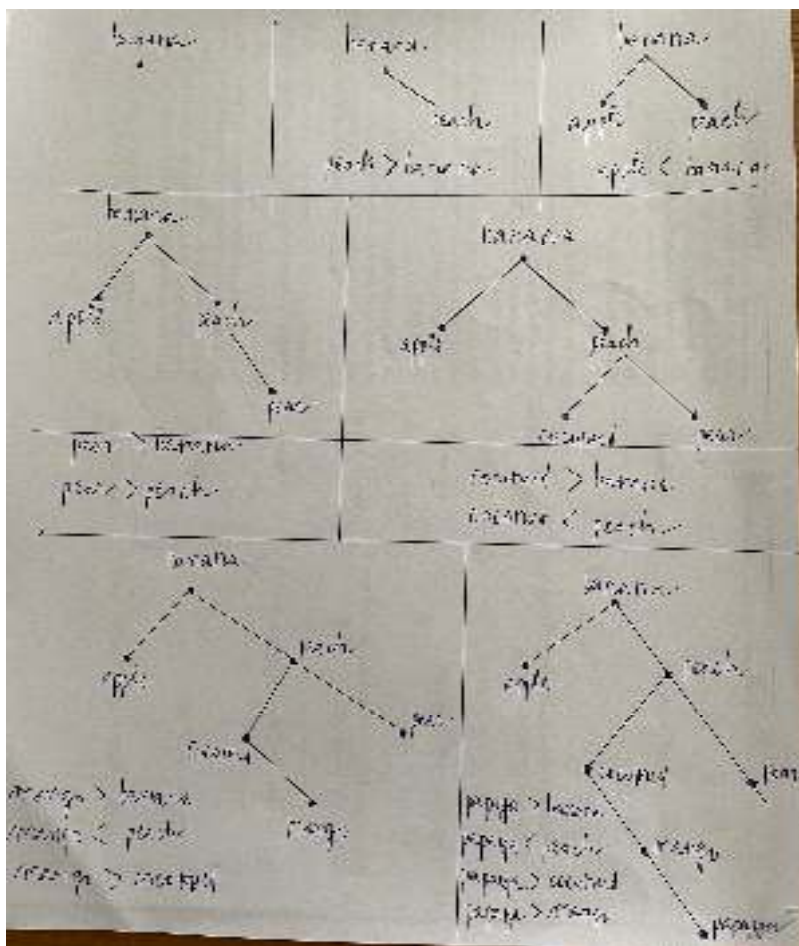 banana
banana
peach
peach > banana
banana
apple
peach
apple < banana
banana
apple
peach
pear
pear > banana
pear > peach
banana
apple
peach
coconut
pear
coconut > banana
coconut < peach
banana
apple
peach
pear
coconut
mango
mango > banana
mango < peach
mango > coconut
banana
apple
peach
coconut
pear
mango
papaya
papaya > banana
papaya < peach
papaya > coconut
papaya > mango